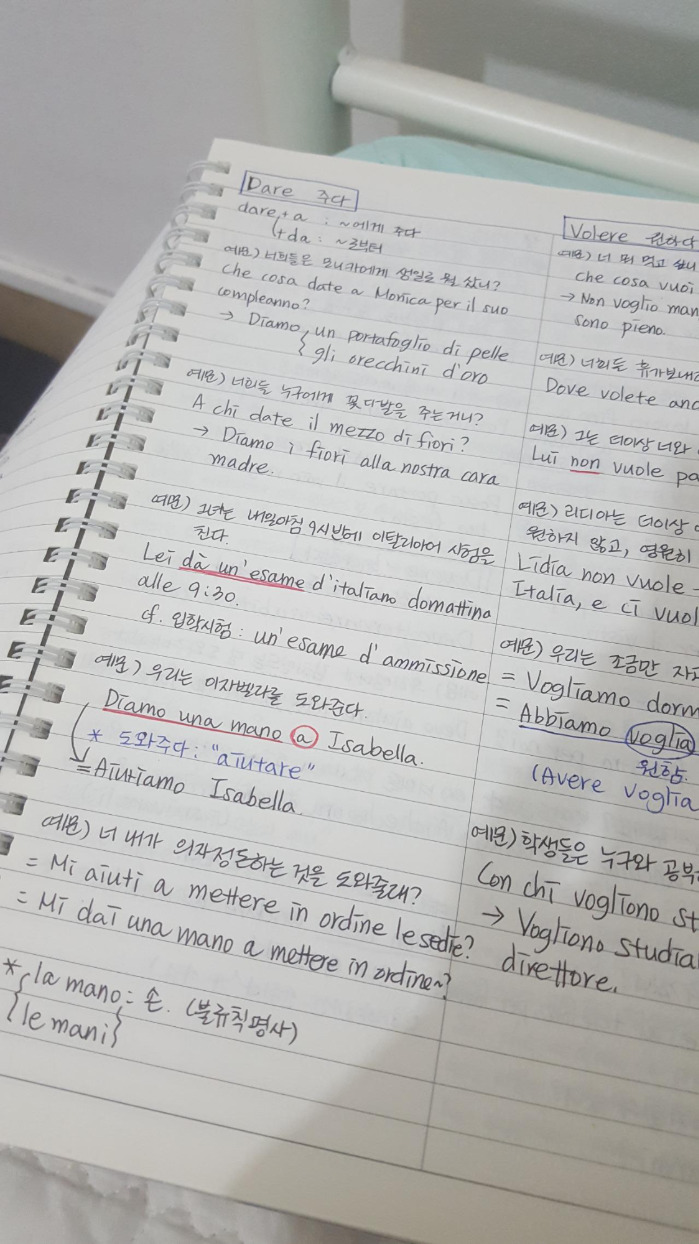 Dare 주다
dare+a : ~에게 주다
+da : ~로부터
예문) 너희들은 모니카에게 생일로 뭘 샀니?
che cosa date a Monica per il suo
compleanno?
→ Diamo un portafoglio di pelle
gli orecchini d'oro
예문) 너희들 누구에게 꽃다발을 주는거니?
A chi date il mezzo di fiori?
→ Diamo i fiori alla nostra cara
madre.
예문) 그녀는 내일아침 9시반에 이탈리아어 시험을
친다.
Lei dà un'esame d'italiano domattina
alle 9:30.
cf. 입학시험 : un'esame d'ammissione
예문) 우리는 이자벨라를 도와준다.
Diamo una mano a Isabella.
* 도와주다 : "aiutare"
=Aiutiamo Isabella.
예문) 너 내가 의자정돈하는 것을 도와줄래?
= Mi aiuti a mettere in ordine le sedie?
= Mi dai una mano a mettere in ordine~?
* la mano : 손. (불규칙명사)
{le mani}
Volere 원하다
예문) 너 뭐 먹고 싶니
che cosa vuoi
→ Non voglio man
sono pieno.
예문) 너희들 휴가보내러
Dove volete anc
예문) 그는 더이상 너와
Lui non vuole pa
예문) 리디아는 더이상
원하지 않고, 영원히
Lidia non vuole
Italia, e ci vuol
예문) 우리는 조금만 자고
= Vogliamo dorm
= Abbiamo voglia
원함.
(Avere voglia
예문) 학생들은 누구와 공부
Con chi vogliono st
→ Vogliono studia
direttore.